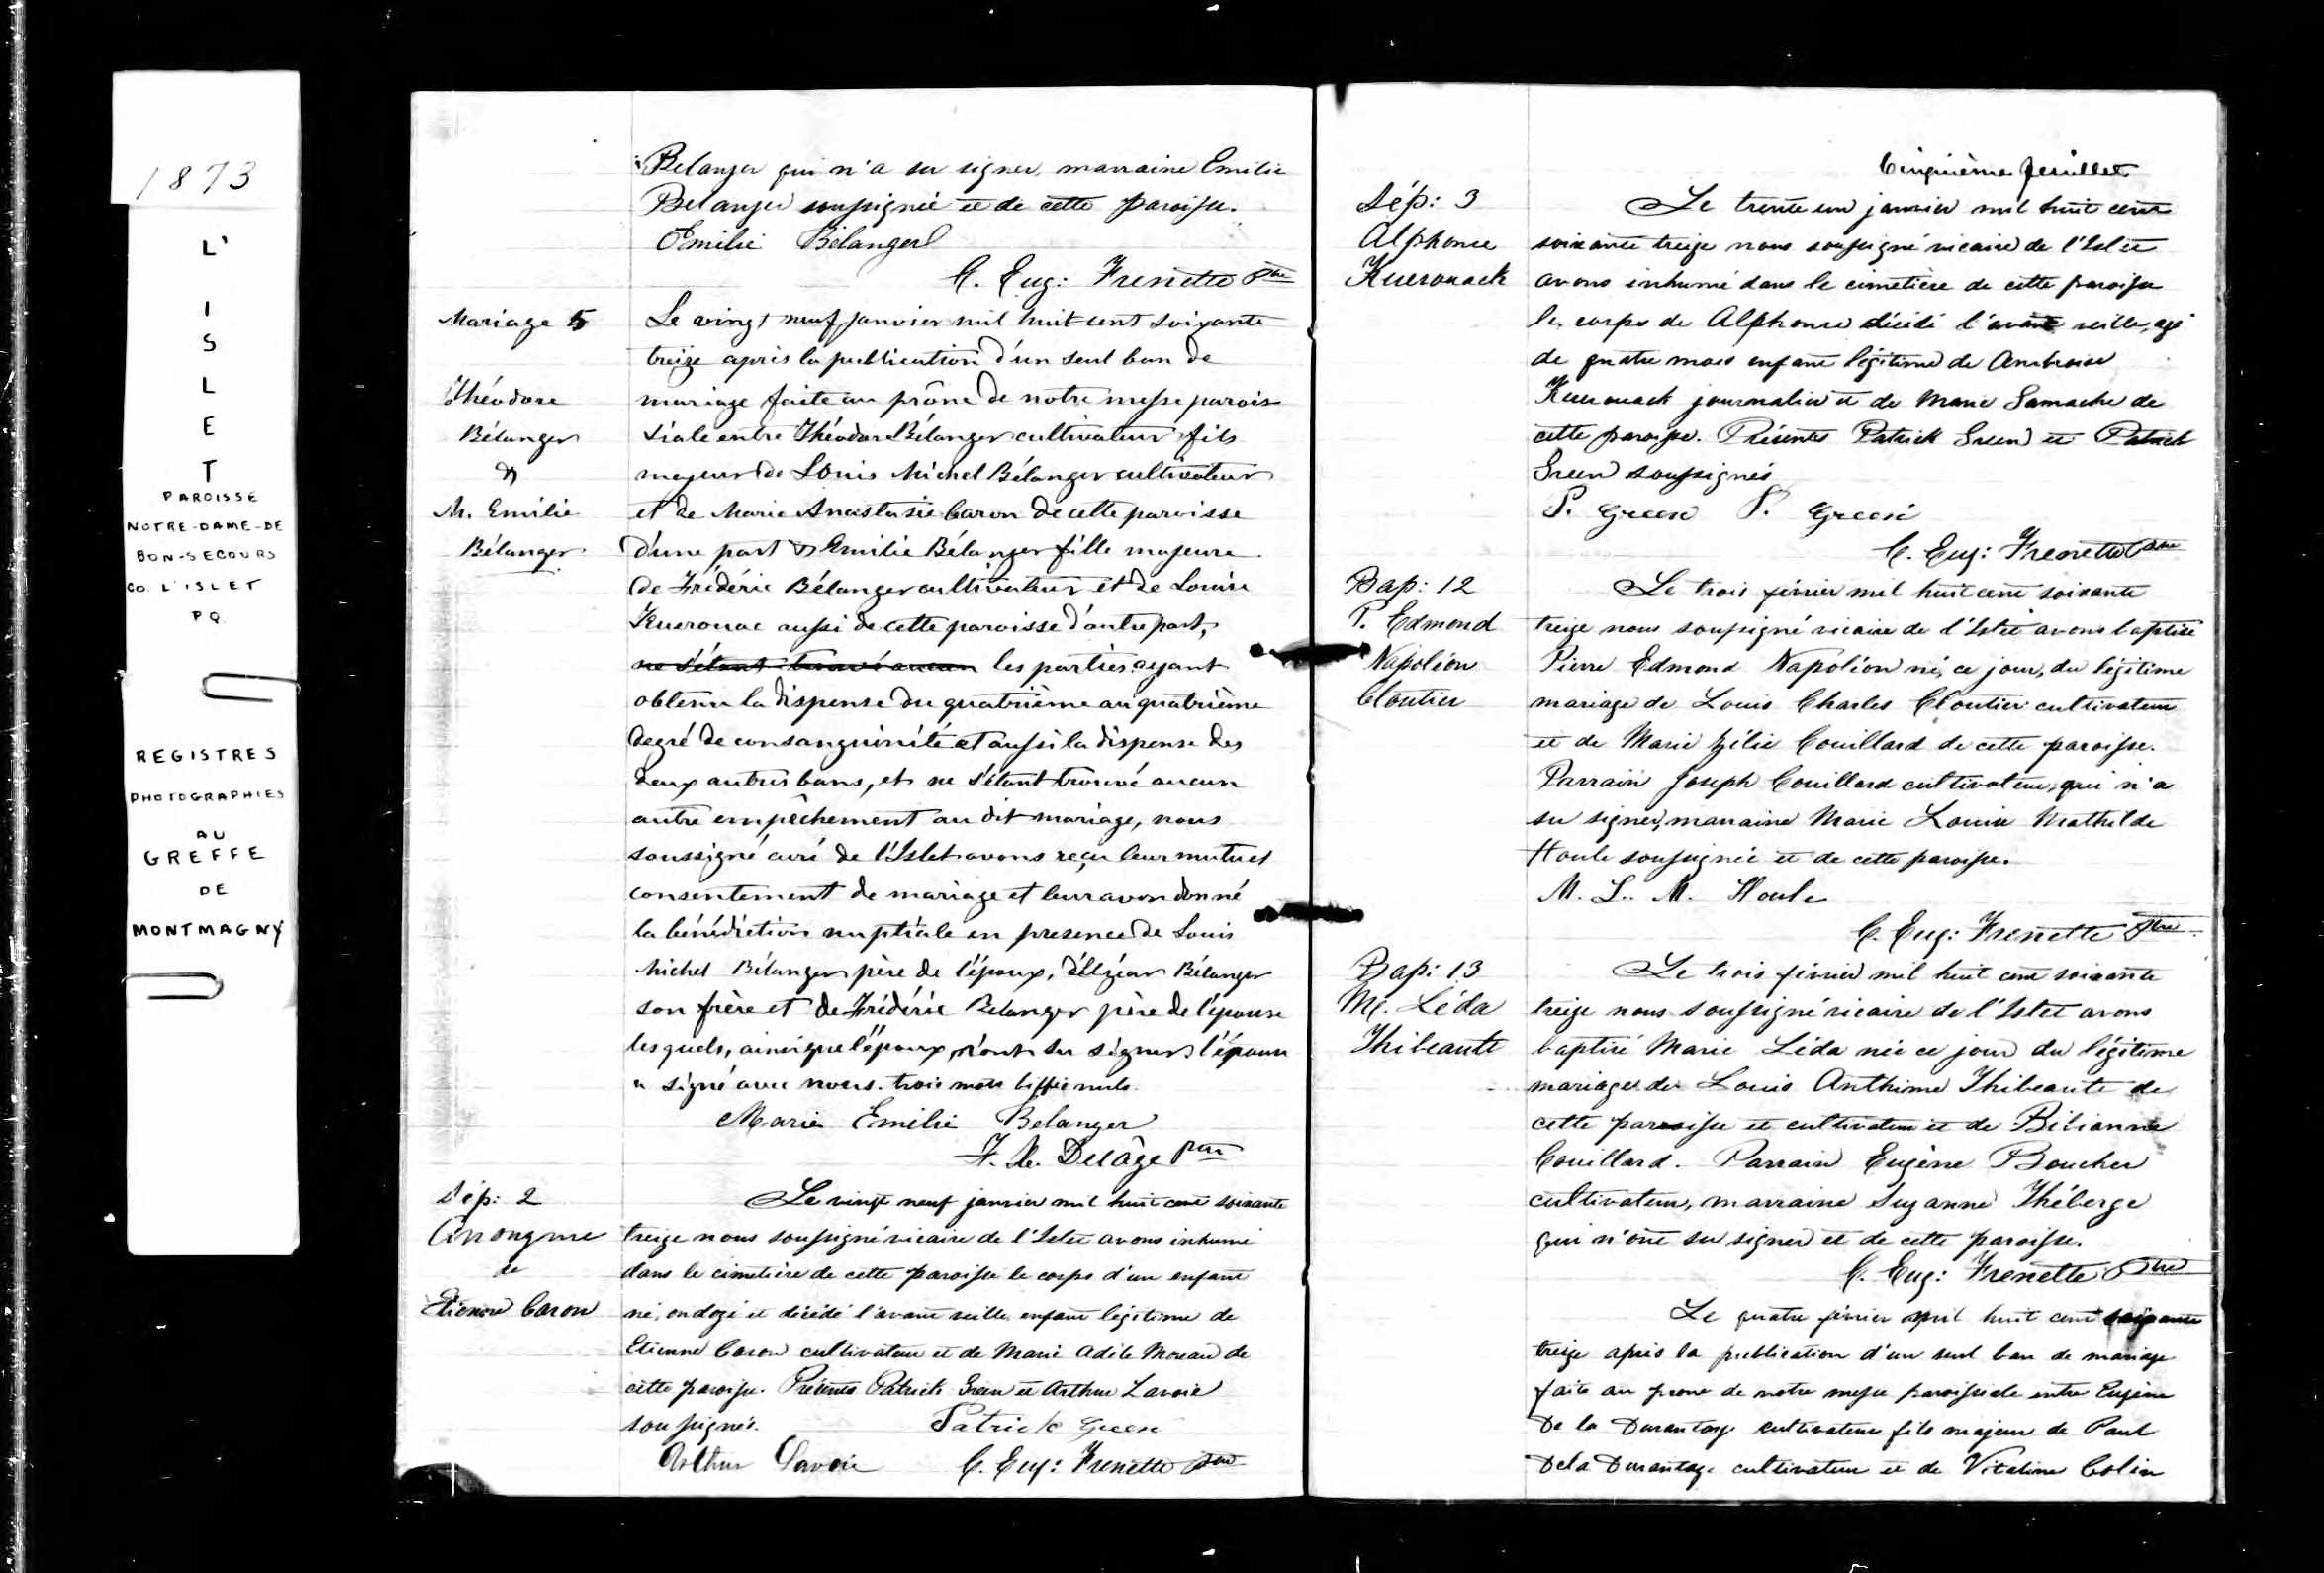 1873
L'
I
S
L
E
T
PAROISSE
NOTRE-DAME-DE
BON-SECOURS
CO. L'ISLET
P Q
REGISTRES
PHOTOGRAPHIES
AU
GREFFE
DE
MONTMAGNY
Belanger qui n'a su signer, marraine Emilie
Belanger soussignée et de cette paroisse.
Emilie Bélanger
C. Eug: Frenette Ptre
Mariage 5
Théodore
Bélanger
&
M. Emilie
Bélanger
Le vingt neuf janvier mil huit cent soixante
treize après la publication d'un seul ban de
mariage faite au prône de notre messe parois
siale entre Théodore Bélanger cultivateur fils
majeur de Louis Michel Bélanger cultivateur
et de Marie Anastasie Caron de cette paroisse
d'une part & Emilie Bélanger fille majeure
de Frédéric Bélanger cultivateur et de Louise
Kuerouac aussi de cette paroisse d'autre part,
ne s'étant trouvé aucun les parties ayant
obtenu la dispense du quatrième au quatrième
degré de consanguinité et aussi la dispense des
deux autres bans, et ne s'étant trouvé aucun
autre empêchement au dit mariage, nous
soussigné curé de l'Islet avons reçu leur mutuel
consentement de mariage et leur avon donné
la bénédiction nuptiale en presence de Louis
Michel Bélanger père de l'époux, d'Elzéar Bélanger
son frère et de Frédéric Belanger père de l'épouse
lesquels, ainsi que l'époux, n'ont su signer l'épouse
a signé avec nous. trois mots biffés nuls.
Marie Emilie Belanger
F. X. Delâge Ptre
Sép: 2
Anonyme
de
Etienne Caron
Le vingt neuf janvier mil huit cent soixante
treize nous soussigné vicaire de l'Islet avons inhumé
dans le cimetière de cette paroisse le corps d'un enfant
né, ondoyé et décédé l'avant veille, enfant légitime de
Etienne Caron cultivateur et de Marie Adèle Moreau de
cette paroisse. Présents Patrick Green et Arthur Lavoie
soussignés. Patrick Green
Arthur Lavoie C. Eug: Frenette Ptre
Cinquième feuillet
Sép: 3
Alphonse
Kuerouack
Le trente un janvier mil huit cent
soixante treize nous soussigné vicaire de l'Islet
avons inhumé dans le cimetière de cette paroisse
le corps de Alphonse décédé l'avant veille, agé
de quatre mois enfant légitime de Ambroise
Kuerouack journalier et de Marie Gamache de
cette paroisse. Présents Patrick Green et Patrick
Green soussignés
P. Green P. Green
C. Eug: Frenette Ptre
Bap: 12
P. Edmond
Napoléon
Cloutier
Le trois février mil huit cent soixante
treize nous soussigné vicaire de l'Islet avons baptisé
Pierre Edmond Napoléon né, ce jour, du légitime
mariage de Louis Charles Cloutier cultivateur
et de Marie Zélie Couillard de cette paroisse.
Parrain Joseph Couillard cultivateur, qui n'a
su signer, marraine Marie Louise Mathilde
Houle soussignée et de cette paroisse.
M. L. M. Houle
C. Eug: Frenette Ptre
Bap: 13
Me. Léda
Thibeault
Le trois février mil huit cent soixante
treize nous soussigné vicaire de l'Islet avons
baptisé Marie Léda née ce jour du légitime
mariage de Louis Anthime Thibeault de
cette paroisse et cultivateur et de Bibianne
Couillard. Parrain Eugène Boucher
cultivateur, marraine Suzanne Théberge
qui n'ont su signer et de cette paroisse.
C. Eug: Frenette Ptre
Le quatre février mil huit cent soixante
treize après la publication d'un seul ban de mariage
faite au prone de notre messe paroissiale entre Eugène
De la Durantaye cultivateur fils majeur de Paul
De la Durantaye cultivateur et de Vitaline Colin